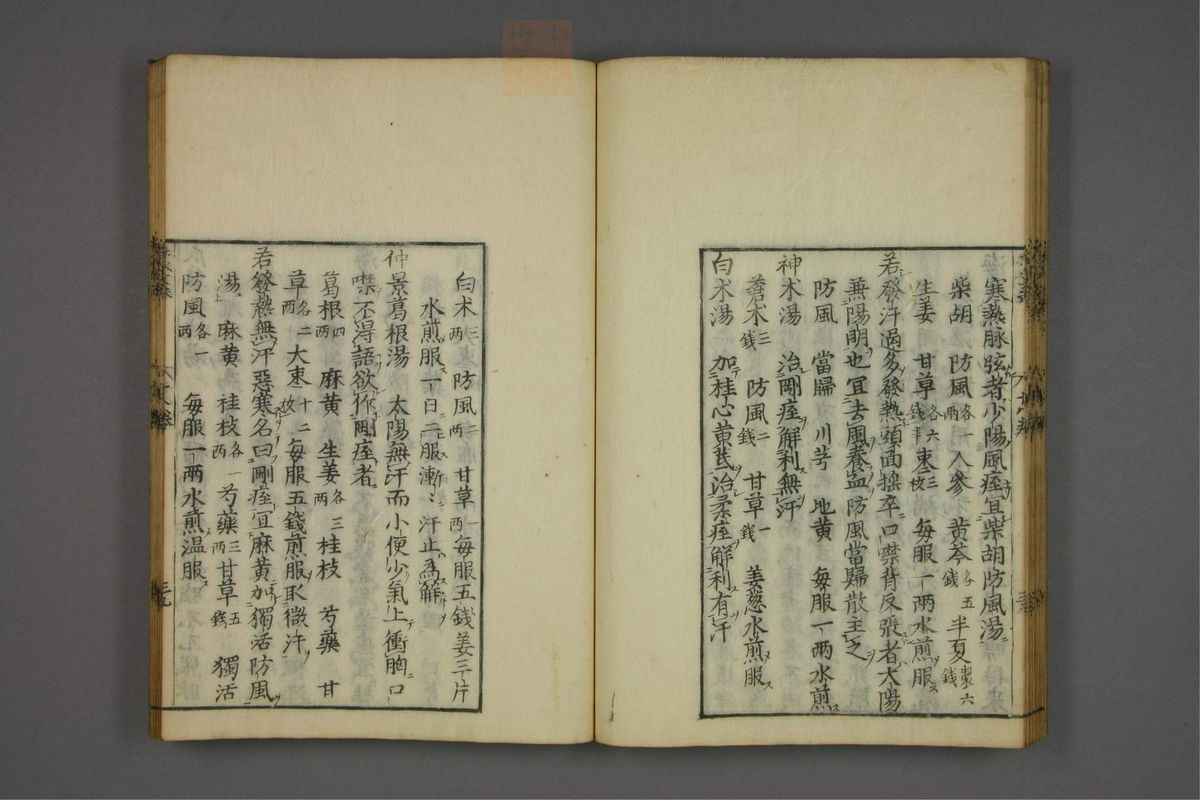 寒熱脉弦者少陽風痓宜柴胡防風湯
柴胡 防風各一両 人參 黄芩各五錢 半夏製六錢
生姜 甘草各六錢半 棗三枚 毎服一両水煎服
若發汗過多發熱頭面揺卒口噤背反張者太陽
兼陽明也宜去風養血防風當歸散主之
防風 當歸 川芎 地黄 毎服一両水煎
神术湯 治剛痓解利無汗
蒼术三錢 防風二錢 甘草一錢 姜葱水煎服
白术湯 加桂心黄芪治柔痓解利有汗
白术三両 防風二両 甘草一両毎服五錢姜三片
水煎服一日二服漸〻汗止為解
仲景葛根湯 太陽無汗而小便少氣上衝胸口
噤不得語欲作剛痓者
葛根四両 麻黄 生姜各三両 桂枝 芍藥 甘
草各二両 大棗十二枚 毎服五錢煎服取微汗
若發熱無汗惡寒名曰剛痓宜麻黄加獨活防風
湯 麻黄 桂枝各一両 芍藥三両 甘草五錢 獨活
防風各一両 毎服一両水煎温服